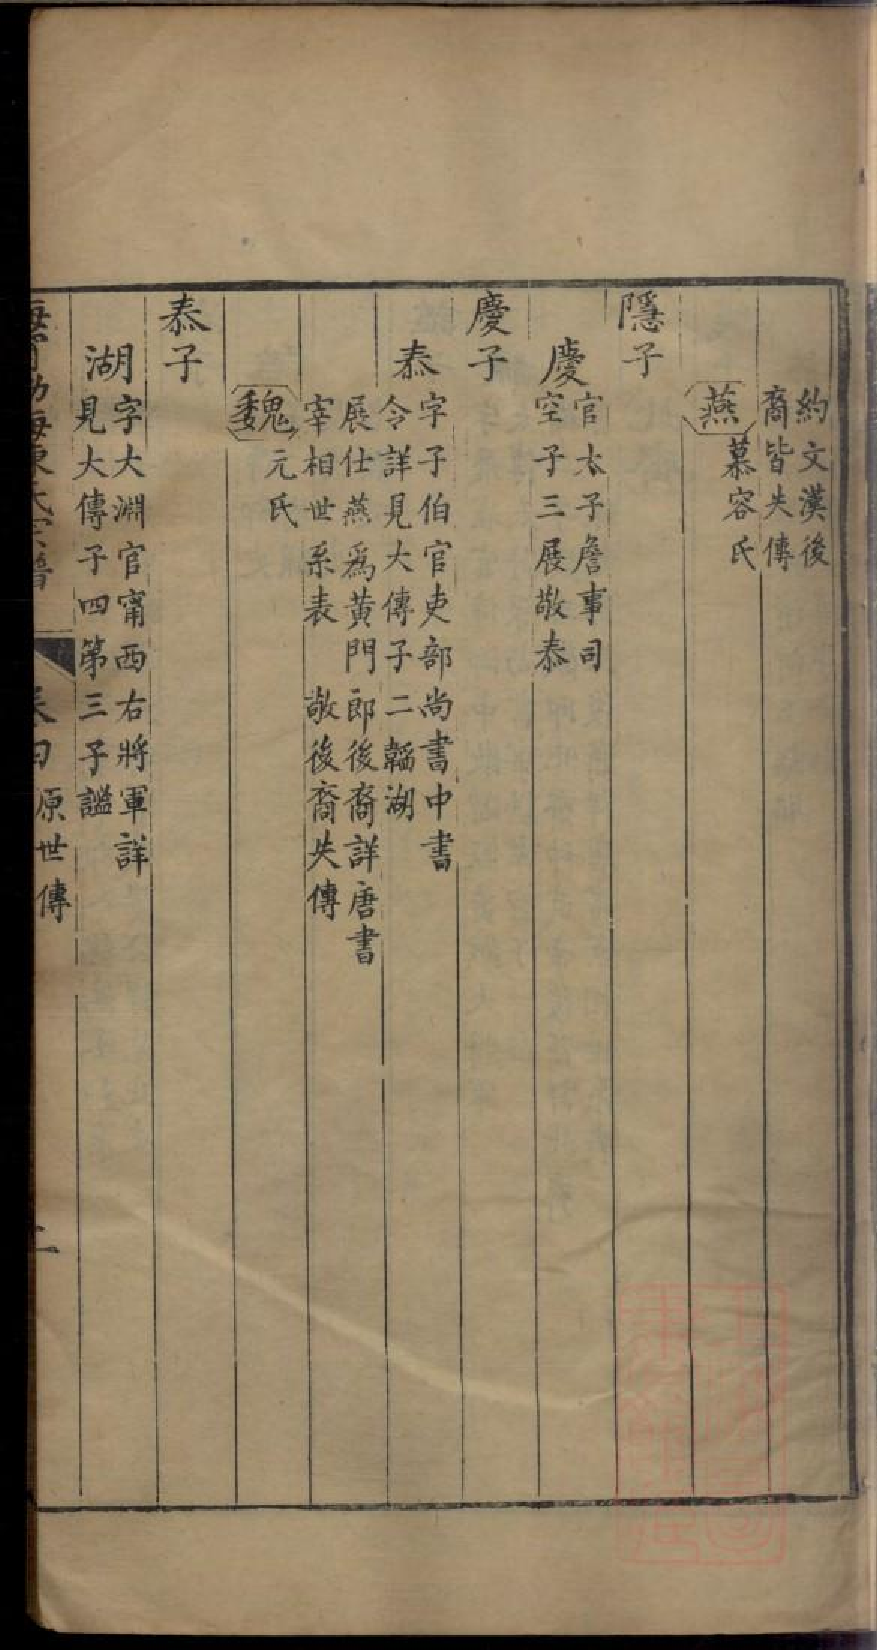 約文漢後
裔皆失傳
燕
慕容氏
隱子
慶
官太子詹事司
空子三展敬泰
慶子
泰
字子伯官吏部尚書中書
令詳見大傳子二韜湖
展仕燕爲黄門郎後裔詳唐書
宰相世系表　敬後裔失傳
魏
元氏
泰子
湖
字大淵官甯西右將軍詳
見大傳子四第三子謐
海
陳氏宗譜
卷四
原世傳
二